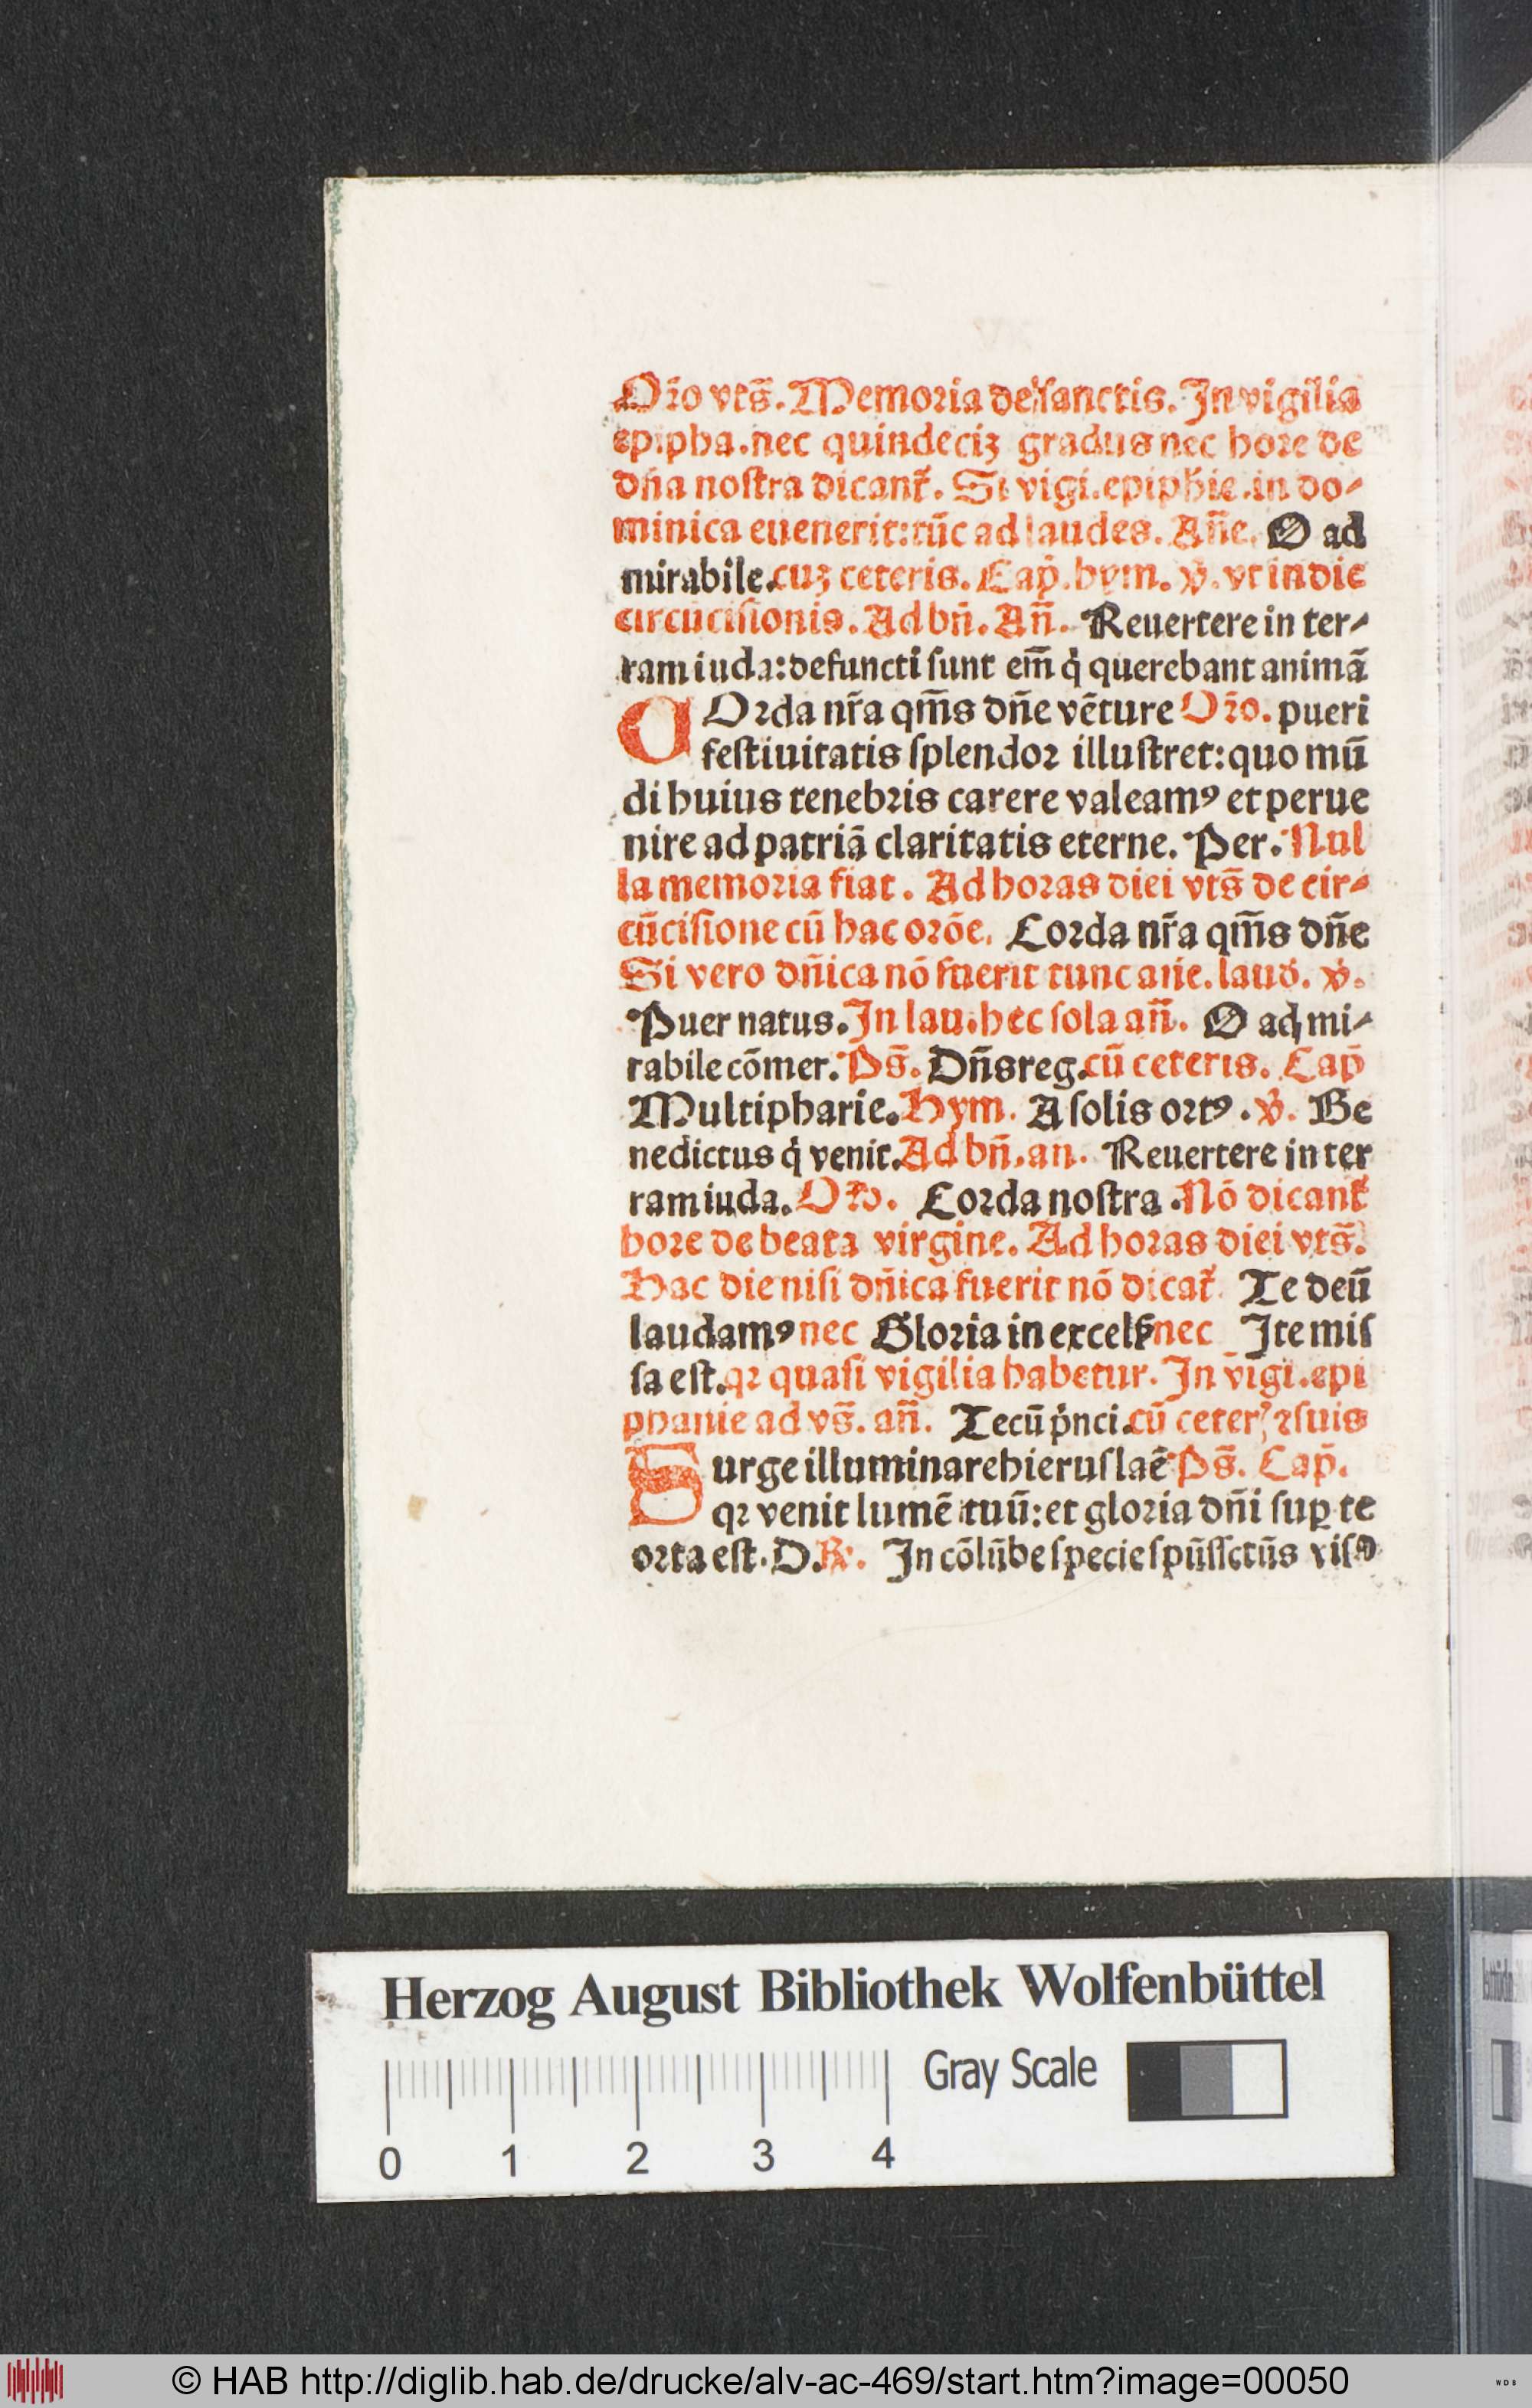 Oꝛ̄o vts̄. Memoꝛia de sanctis. In vigilia
epipha. nec quindeciꝫ gradus nec hoꝛe de
dn̄a noſtra dicant̃. Si vigi. epiph̄ie. in do⸗
minica euenerit: tūc ad laudes. An̄e. O ad
mirabile. cuꝫ ceteris. Cap̄. hym. ℣. vt in die
circūciſionis. Ad bn̄. An̄. Reuertere in ter⸗
ram iuda: defuncti ſunt em̄ q̇ querebant animā
COꝛda nr̄a qm̄s dn̄e vēture Oꝛ̄o. pueri
feſtiuitatis ſplendoꝛ illuſtret: quo mū
di huius tenebꝛis carere valeamꝰ et perue
nire ad patriā claritatis eterne. Per. Nul
la memoꝛia fiat. Ad hoꝛas diei vts̄ de cir⸗
cūciſione cū hac oꝛōe. Coꝛda nr̄a qm̄s dn̄e
Si vero dn̄ica nō fuerit tunc an̄e. laud. ℣.
Puer natus. In lau. hec ſola an̄. O ad mi⸗
rabile cōmer. Ps̄. Dn̄s reg. cū ceteris. Cap̄
Multipharie. Hym. A ſolis oꝛtꝰ. ℣. Be
nedictus q̇ venit. Ad bn̄. an. Reuertere in ter
ram iuda. Oꝛ̄o. Coꝛda noſtra. Nō dicant̃
hoꝛe de beata virgine. Ad hoꝛas diei vts̄.
Hac die niſi dn̄ica fuerit nō dicat̃. Te deū
laudamꝰ nec Gloꝛia in excelſ̲ nec Ite miſ
ſa eſt. qꝛ quaſi vigilia habetur. In vigi. epi
phanie ad vs̄. an̄. Tecū p̄nci. cū ceter̃ ꝛ ſuis
Surge illuminare hieruſlaē Ps̄. Cap̄.
qꝛ venit lumē tuū: et gloꝛia dn̄i ſuꝑ te
oꝛta eſt. D. ℟. In cōlūbe ſpecie ſpūſſctūs viſꝰ
Herzog August Bibliothek Wolfenbüttel
Gray Scale
0 1 2 3 4
© HAB http://diglib.hab.de/drucke/alv-ac-469/start.htm?image=00050
WDB